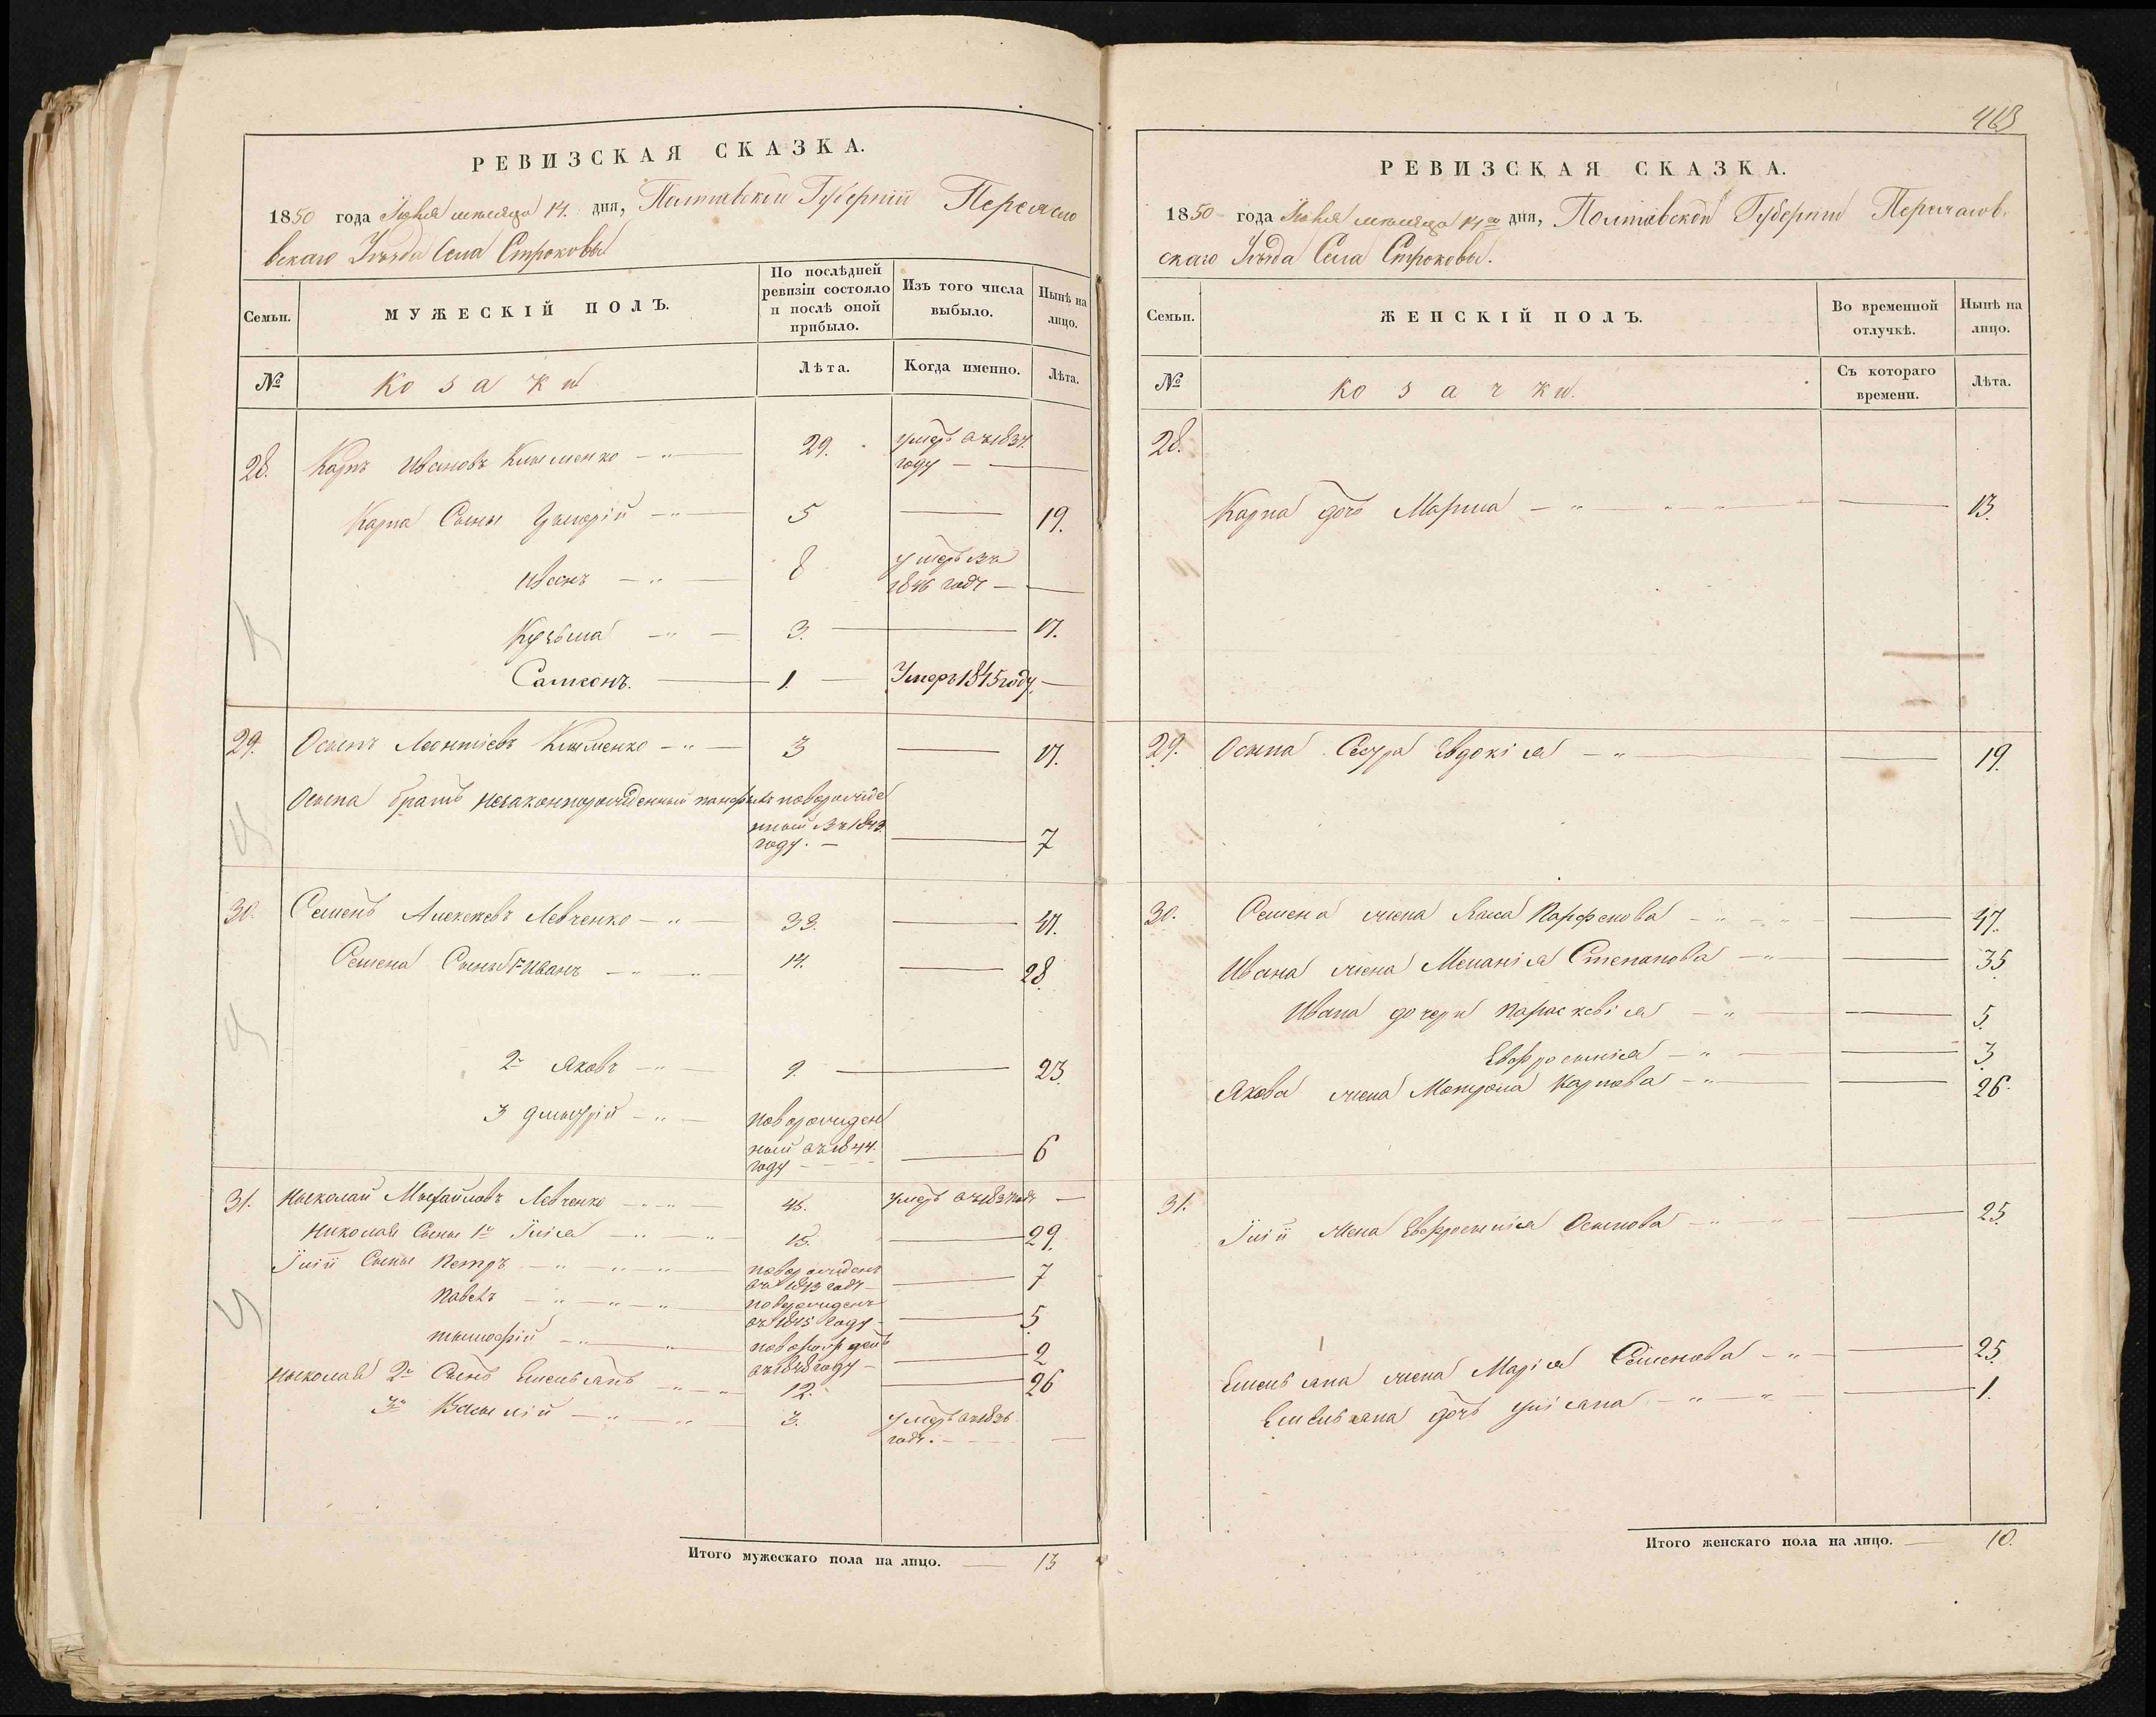 РЕВИЗСКАЯ СКАЗКА.
1850 года Іюня мѣсяца 14. дня, Полтавской Губерніи Переясло
вскаго Уѣзда Села Строковы
Семьи.
МУЖЕСКІЙ ПОЛЪ.
По послѣдней
ревизіи состояло
и послѣ оной
прибыло.
Изъ того числа
выбыло.
Нынѣ на
лицо.
№
Козаки
Лѣта.
Когда именно.
Лѣта.
28. Карпъ Ивановъ Клыменко 29. умеръ въ 1834
году
Карпа Сыны 5 19.
Иванъ 8 умеръ въ
1846 годѣ
Кузьма 3. 17.
Самсонъ. 1. Умеръ 1845 году
29. Осыпъ Леонтіевъ Клыменко 3 17.
Осыпа братъ незаконнорожденный новорожде
нный въ 1843
году. 7
30. Семенъ Алексѣевъ Левченко 33. 47.
Семена Сыны 1й Иванъ 14. 28.
2й Яковъ 9. 23
3 Дмытрій новорожден
ный въ 1844.
году 6
31. Ныколай Мыхайловъ Левченко 45. умеръ въ 1837 годѣ
Николая Сыны 1й Іилія 15. 29.
Іиліи Сыны Петръ новорожденъ
въ 1843 годѣ 7
Павелъ новорожденъ
въ 1845 году 5
тымофій новорожденъ
въ 1848 году 2
Ныколая 2й Сынъ Емельянъ 12. 26
3й Васылій 3. умеръ въ 1836
годѣ.
Итого мужескаго пола на лицо. 13
463
РЕВИЗСКАЯ СКАЗКА.
1850 года Іюня мѣсяца 14го дня, Полтавской Губерніи Переяслов
скаго Уѣзда Села Строковы.
Семьи.
ЖЕНСКІЙ ПОЛЪ.
Во временной
отлучкѣ.
Нынѣ на
лицо.
№
Козачки.
Съ котораго
времени.
Лѣта.
28.
Карпа дочь Марина 13.
29. Осыпа Сестра Евдокія 19.
30. Семена жена Парфенова 47.
Ивана жена Меланія Степанова 35
Ивана дочери Параскевія 5.
Евфросынія 3.
Якова жена Мотрона Карпова 26.
31.
Іиліи жена Евфросынія Осыпова 25
Емельяна жена Марія Семенова 25.
Емельяна дочь Уліяна 1.
Итого женскаго пола на лицо. 10.